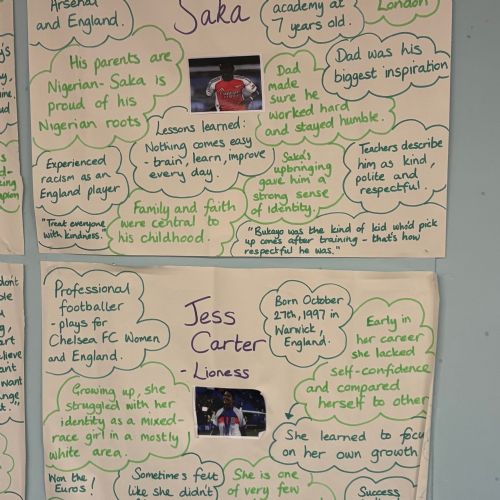 Arsenal
and England.
Saka
academy at
7 years old.
London
His parents are
Nigerian - Saka is
proud of his
Nigerian roots
Dad
made
sure he
worked hard
and stayed humble.
Dad was his
biggest inspiration
Lessons learned:
Nothing comes easy
- train, learn, improve
every day.
Experienced
racism as an
England player
Saka's
upbringing
gave him a
strong sense
of identity.
Teachers describe
him as kind,
polite and
respectful.
"Treat everyone
with kindness."
Family and faith
were central to
his childhood.
"Bukayo was the kind of kid who'd pick
up cones after training - that's how
respectful he was."
Professional
footballer
- plays for
Chelsea FC Women
and England.
Jess
Carter
- Lioness
Born October
27th, 1997 in
Warwick,
England.
Early in
her career
she lacked
self-confidence
and compared
herself to other
Growing up, she
struggled with her
identity as a mixed-
race girl in a mostly
white area.
She learned to focu
on her own growth
Won the
Euros!
Sometimes felt
like she didn't
She is one
of very few
Success